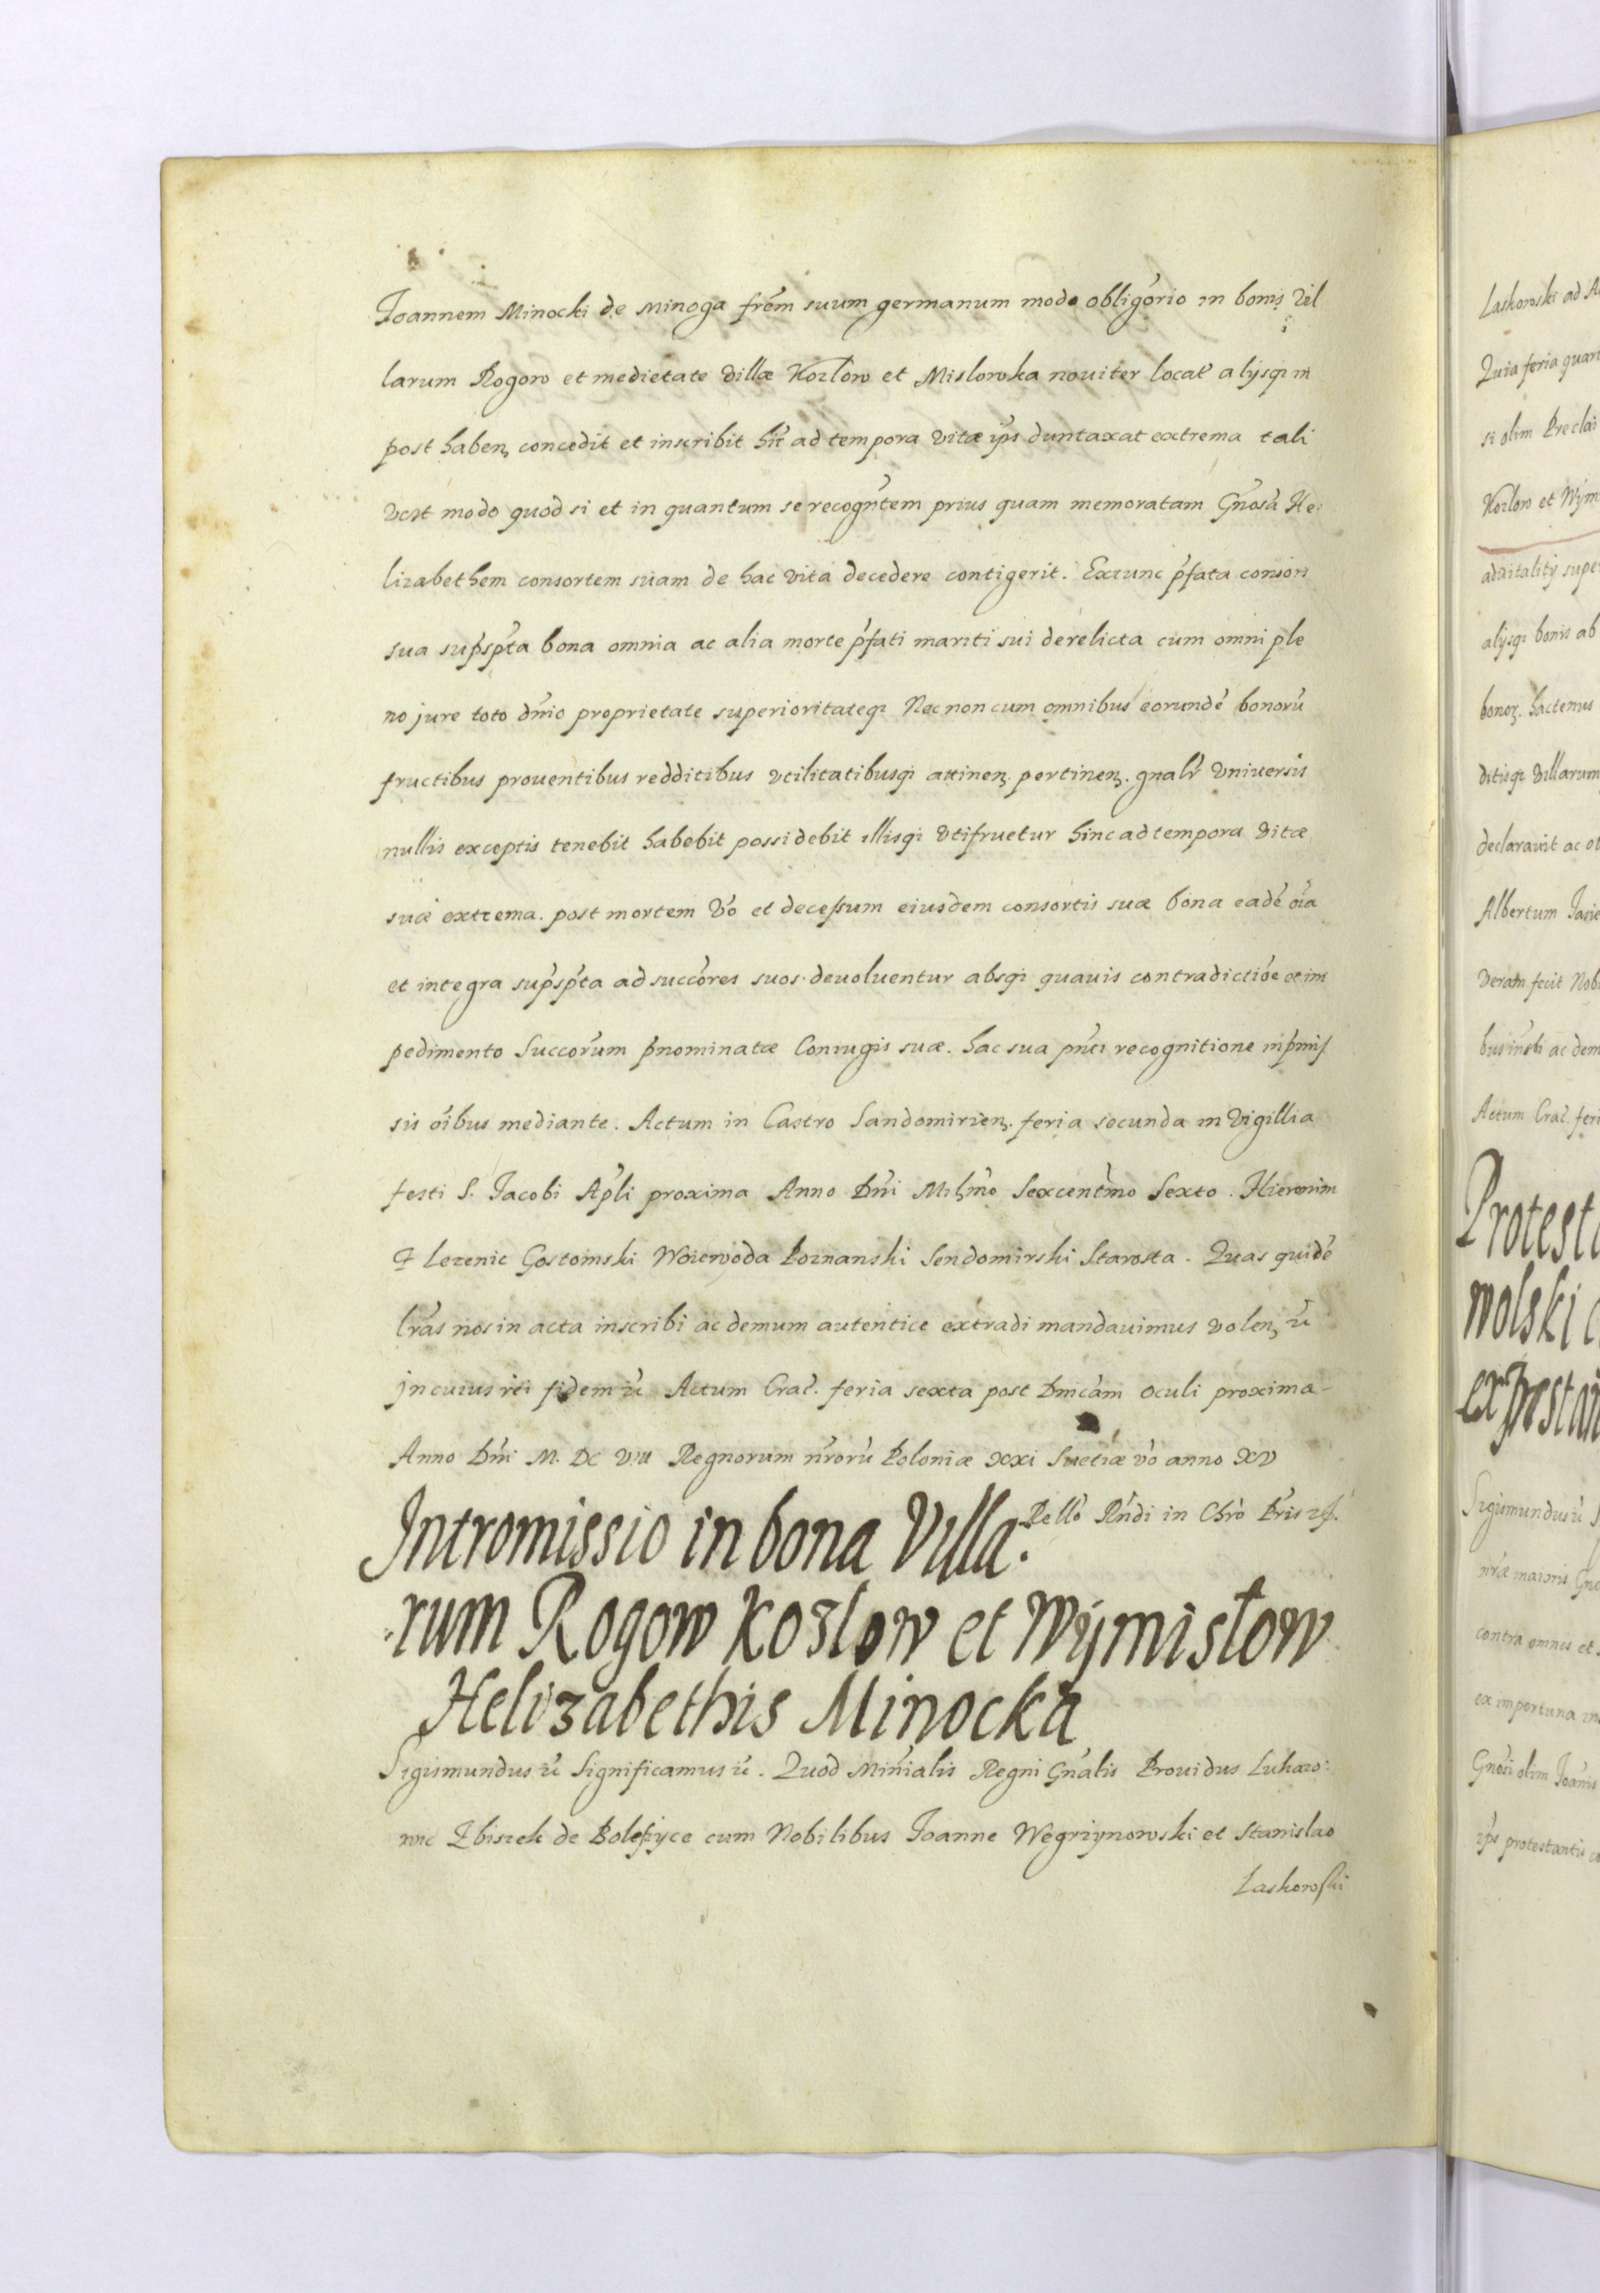 Joannem Minocki de Minoga frem suum germanum modo obligorio in bonis Vil
larum Rogow et medietate villæ Kozlow et Mislowka noviter locat alysq in
post haben concedit et inscribit hit ad tempora vitæ ips duntaxat extrema tali
vert modo quod si et in quantum se recogntem prius quam memoratam Gnosa He:
lizabethem consortem suam de hac vita decedere contigerit. Extunc pfata consors
sua supspta bona omnia ac alia morte pfati mariti sui derelicta cum omni ple
no jure toto dnio proprietate superioritateq Nec non cum omnibus eorunde bonoru
fructibus prouentibus redditibus vtilitatibusq attinen. pertinen. gnalr vniversis
nullis exceptis tenebit habebit possidebit illisq vtifruetur hinc ad tempora vitæ
suæ extrema. post mortem vo et decessum eiusdem consortis suæ bona eade oia
et integra supspta ad succores suos devoluentur absq quavis contradictioe et im
pedimento Succorum pnominatæ Coniugis suæ. hac sua pnti recognitione in pmis
sis oibus mediante. Actum in Castro Sandomirien. feria secunda in vigillia
festi S. Jacobi Apli proxima Anno Dni Mihmo Sexcentmo Sexto. Hieronim
Z Lezenic Gostomski Woiewoda Poznanski Sendomirski Starosta. Quas quide
lras nos in acta inscribi ac demum autentice extradi mandauimus volen. &
in cuius rei fidem & Actum Crac. feria sexta post Dnicam Oculi proxima
Anno Dni M. DC VIII Regnorum nroru Poloniæ XXI Suetiæ vo anno XV
Rello Rndi in Chro Pris &.
Intromissio in bona Villa:
rum Rogow Kozlow et Wymislow
Helizabethis Minocka
Sigismundus & Significamus &. Quod Minialis Regni Gnalis Prouidus Lukaso:
wic Zbiszek de Boleszyce cum Nobilibus Joanne Wegrzynowski et Stanislao
Laskowski
Laskowski ad
Quia feria quar
si olim Preclai
Kozlow et Wym
advitality supe
alysq bonis ab
bonor. hactenus
ditisq villarum
declaravit ac
Albertum Jasie
Veram fecit Nob
ac dem
Actum Crac. feri
Protest
wolski
Sigismundus &
nræ maioris Gn
contra omnes et
ex importuna
Gnosi olim Joanis
ips protestantis